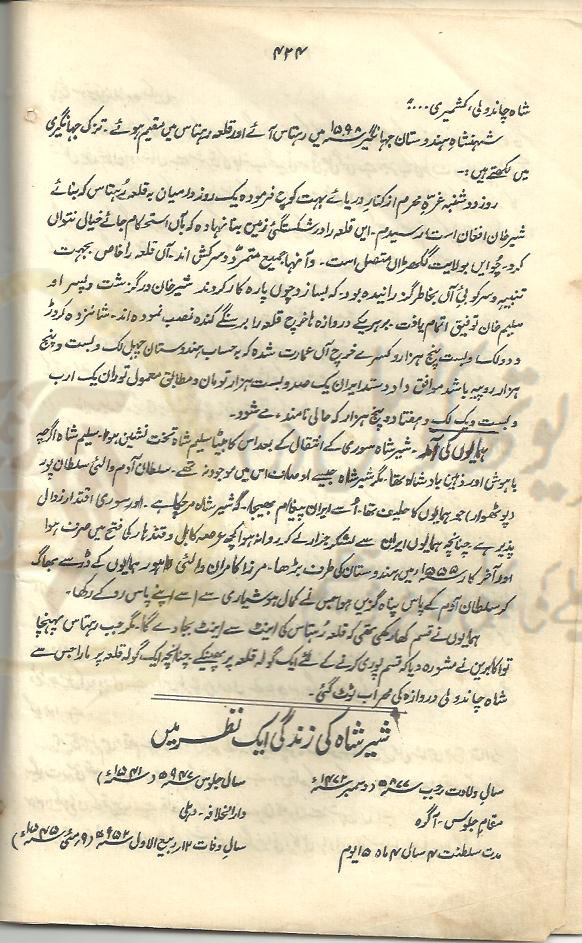 ۴۲۴
شاہ چاندولی، کشمیری ....؟
شہنشاہِ ہندوستان جہانگیر ۱۵۹۸ء میں رہتاس آئے اور قلعہ رہتاس میں مقیم ہوئے۔ تزک جہانگیری
میں لکھتے ہیں:۔
روز دو شنبہ غرّہ محرم از کنار دریائے بہت کوچ فرمودہ یک روز درمیان بہ قلعہ رُہتاس کہ بنائے
شیر خان افغان است رسیدم۔ ایں قلعہ را در شکستگئی زمین بنا نہادہ کہ بآں استحکام جائے خیالی نتواں
کرد۔ چوں ایں بولایت گکھڑاں متصل است۔ و آنہا جمیع متمرّد و سرکش اند۔ آں قلعہ را خاص بجہت
تنبیہ و سرکوبئی آں بخاطر گزرانیدہ بود۔ کہ بسازد چوں پارہ کار کردند شیر خان در گزشت و پسر او
سلیم خان توفیق اتمام یافت۔ بر ہر یکے دروازہ ہا خرچ قلعہ را بر سنگے کندہ نصب نمودہ اند۔ شانزدہ کروڑ
و دہ لک و بست پنچ ہزار و کسرے خرچ آں عمارت شدہ کہ بر حساب ہندوستان چہل لک و بست و پنچ
ہزار روپیہ باشد موافق داد و ستد ایران یک صد و بست ہزار تومان و مطابق معمول توران یک ارب
و بست و یک لک و ہفتاد و پنچ ہزار کہ حالی نامند مے شود۔
ہمایوں کی آمد۔ شیر شاہ سوری کے انتقال کے بعد اس کا بیٹا سلیم شاہ تخت نشین ہوا۔ سلیم شاہ اگرچہ
باہوش اور ذہین بادشاہ تھا۔ مگر شیر شاہ جیسے اوصاف اس میں موجود نہ تھے۔ سلطان آدم والئی سلطان پور
(پوٹھوہار) جو ہمایوں کا حلیف تھا۔ اُسے ایران پیغام بھیجا۔ کہ شیر شاہ مر چکا ہے۔ اور سوری اقتدار زوال
پذیر ہے چنانچہ ہمایوں ایران سے لشکر جرار لے کر روانہ ہوا کچھ عرصہ کابل و قندہار کی فتح میں صرف ہوا
اور آخر کار ۱۵۵۵ء میں ہندوستان کی طرف بڑھا۔ مرزا کامران والئی لاہور ہمایوں کے ڈر سے بھاگ
کر سلطان آدم کے پاس پناہ گزیں ہوا جس نے کمال ہوشیاری سے اسے اپنے پاس روکے رکھا۔
ہمایوں نے قسم کھا رکھی تھی کہ قلعہ رُہتاس کی اینٹ سے اینٹ بجا دے گا۔ مگر جب رہتاس پہنچا
تو اکابرین نے مشورہ دیا کہ قسم پوری کرنے کے لئے ایک گولہ قلعہ پر پھینکے چنانچہ ایک گولہ قلعہ پر مارا جس سے
شاہ چاندولی دروازہ کی محراب ٹوٹ گئی۔
شیر شاہ کی زندگی ایک نظر میں
سالِ ولادت رجب ۸۷۷ھ (دسمبر ۱۴۷۲ء سال جلوس ۹۴۷ھ (۱۵۴۱ء)
مقامِ جلوس۔ آگرہ دارالخلافہ۔ دہلی
مدت سلطنت ۴ سال ۴ ماہ ۱۵ یوم سالِ وفات ۱۲ ربیع الاول ۹۵۲ھ (۹ مئی ۱۵۴۵ء)